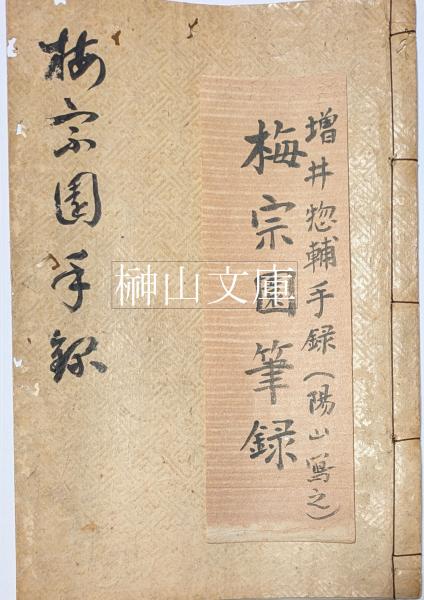 増井惣輔手録(陽山写之)
梅宗園筆録
梅宗園手録
榊山文庫